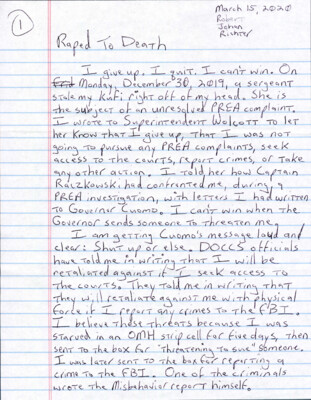 1
March 15, 2020
Robert
Johan
Richter
Raped To Death
I give up. I quit. I can't win. On
Monday, December 30, 2019, a sergeant
stole my kufi right off of my head. She is
the subject of an unresolved PREA complaint.
I wrote to Superintendent Wolcott to let
her know that I give up, that I was not
going to pursue any PREA complaints, seek
access to the courts, report crimes, or take
any other action. I told her how Captain
Raczkowski had confronted me, during a
PREA investigation, with letters I had written
to Governor Cuomo. I can't win when the
Governor sends someone to threaten me.
I am getting Cuomo's message loud and
clear: Shut up or else. DOCCS officials
have told me in writing that I will be
retaliated against if I seek access to
the courts. They told me in writing that
they will retaliate against me with physical
force if I report any crimes to the FBI.
I believe those threats because I was
starved in an OMH strip cell for five days, then
sent to the box for "threatening to sue" someone.
I was later sent to the box for reporting a
crime to the FBI. One of the criminals
wrote the Misbehavior report himself.